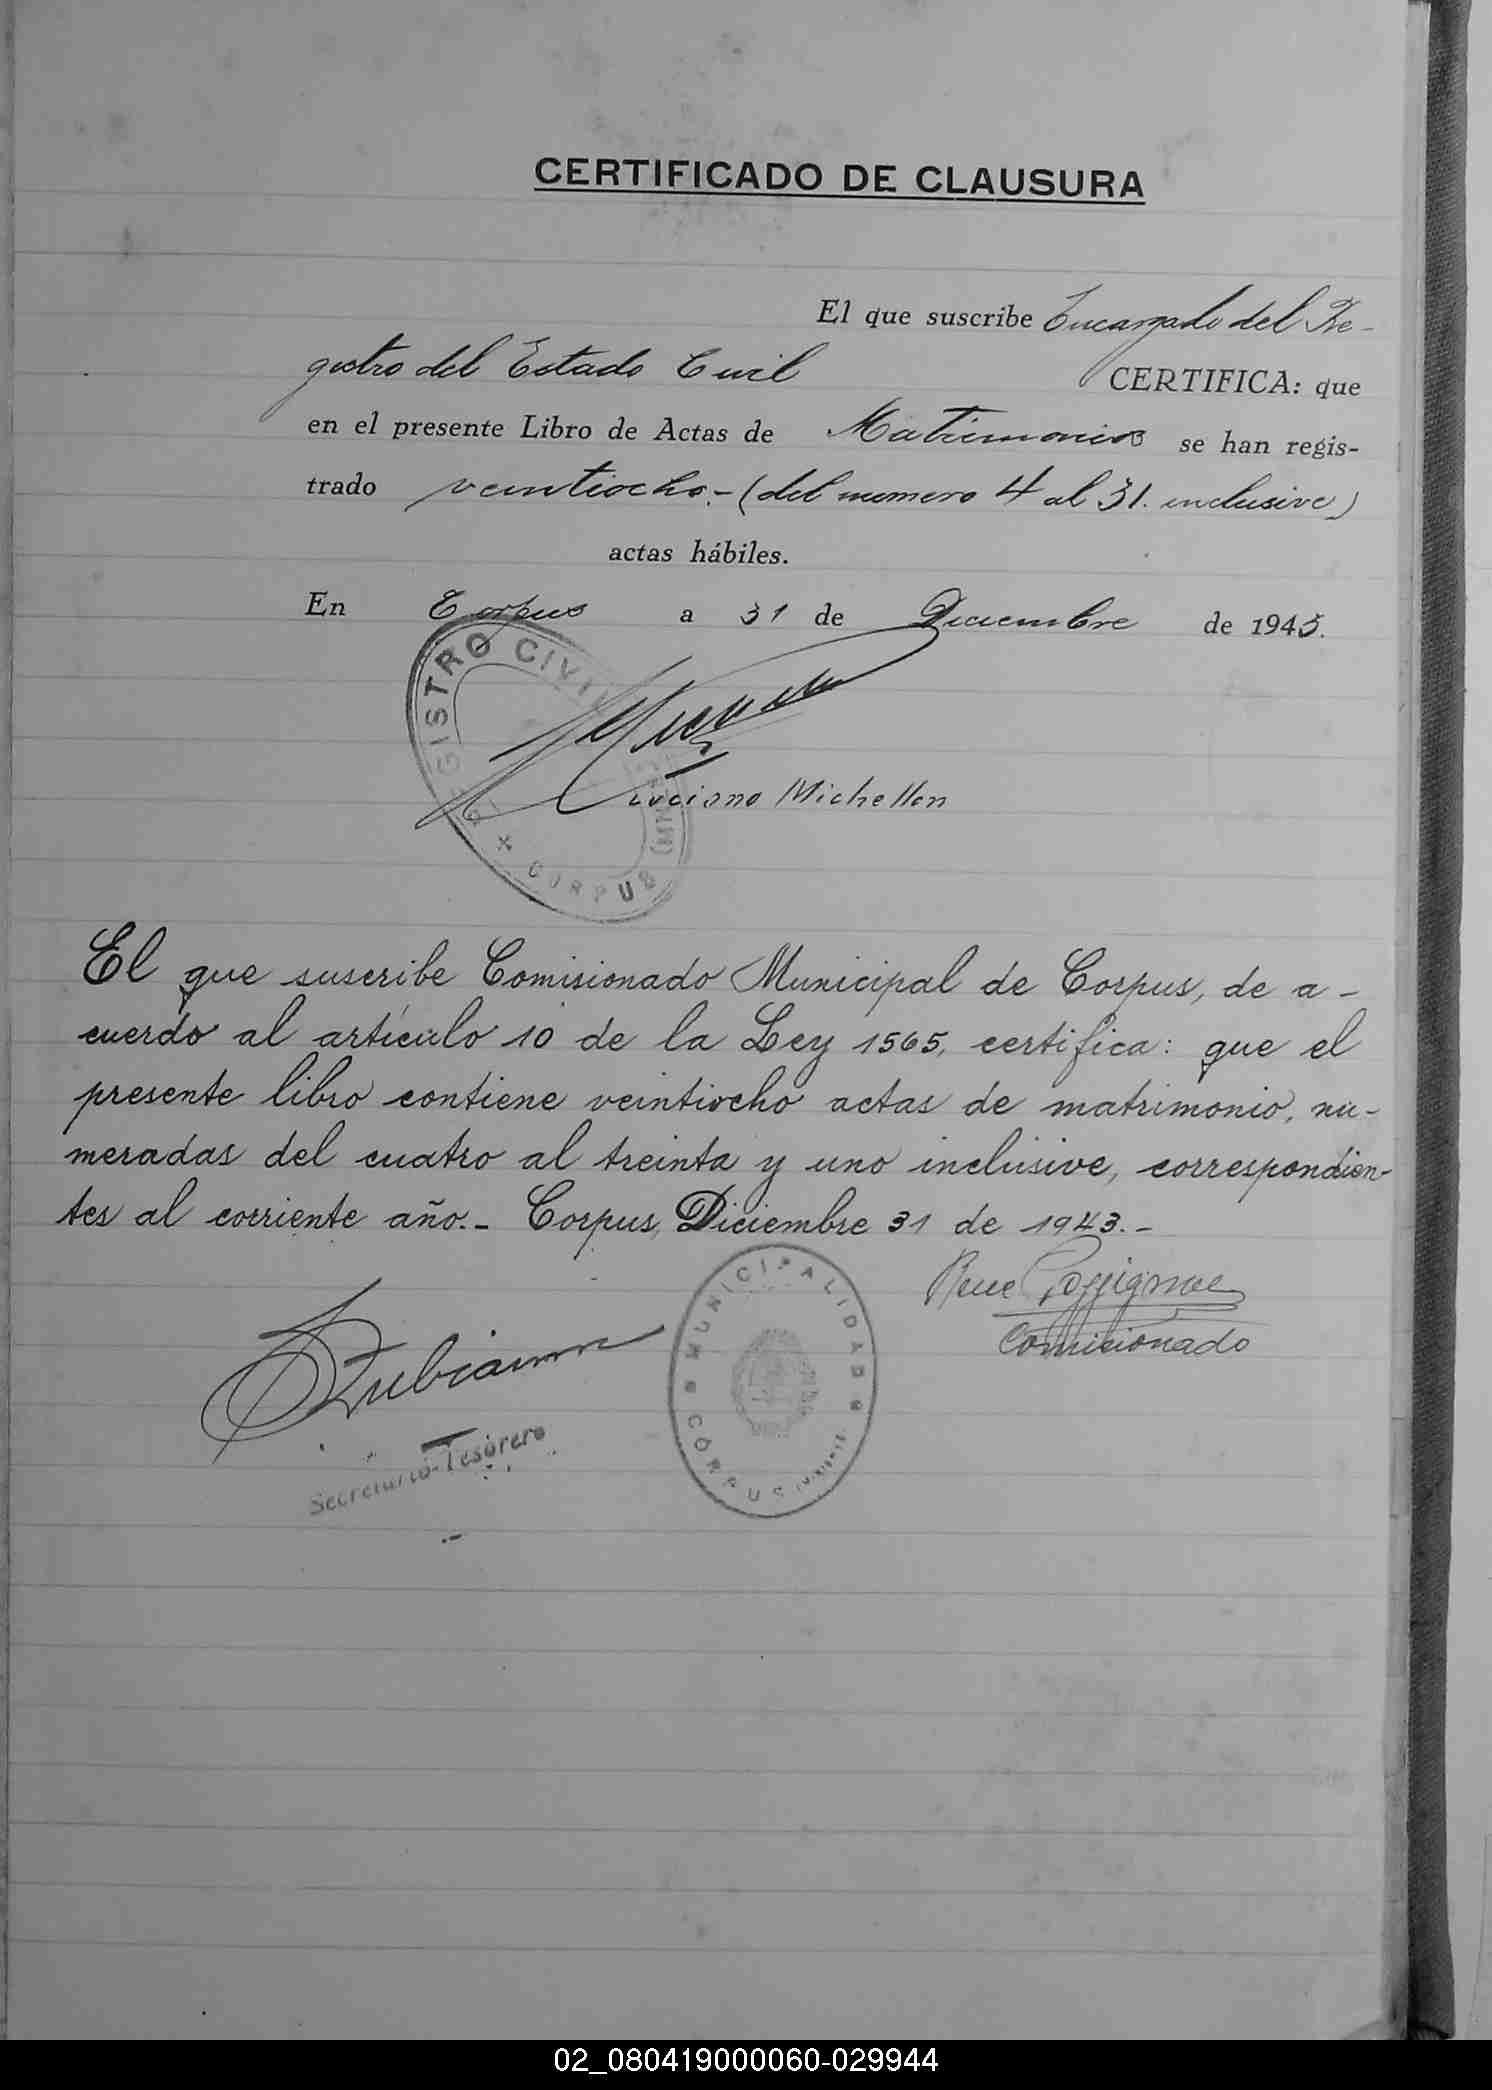 CERTIFICADO DE CLAUSURA
El que suscribe Encargado del Re-
gistro del Estado Civil CERTIFICA: que
en el presente Libro de Actas de Matrimonios se han regis-
trado veintiocho.- (del numero 4 al 31. inclusive)
actas hábiles.
En Corpus a 31 de Diciembre de 1943.
REGISTRO CIVIL
Luciano Michellon
CORPUS
El que suscribe Comisionado Municipal de Corpus, de a-
cuerdo al artículo 10 de la Ley 1565, certifica: que el
presente libro contiene veintiocho actas de matrimonio, nu-
meradas del cuatro al treinta y uno inclusive, correspondien-
tes al corriente año.- Corpus, Diciembre 31 de 1943.-
MUNICIPALIDAD
CORPUS
Rene
Comisionado
Secretario-Tesorero
02_080419000060-029944